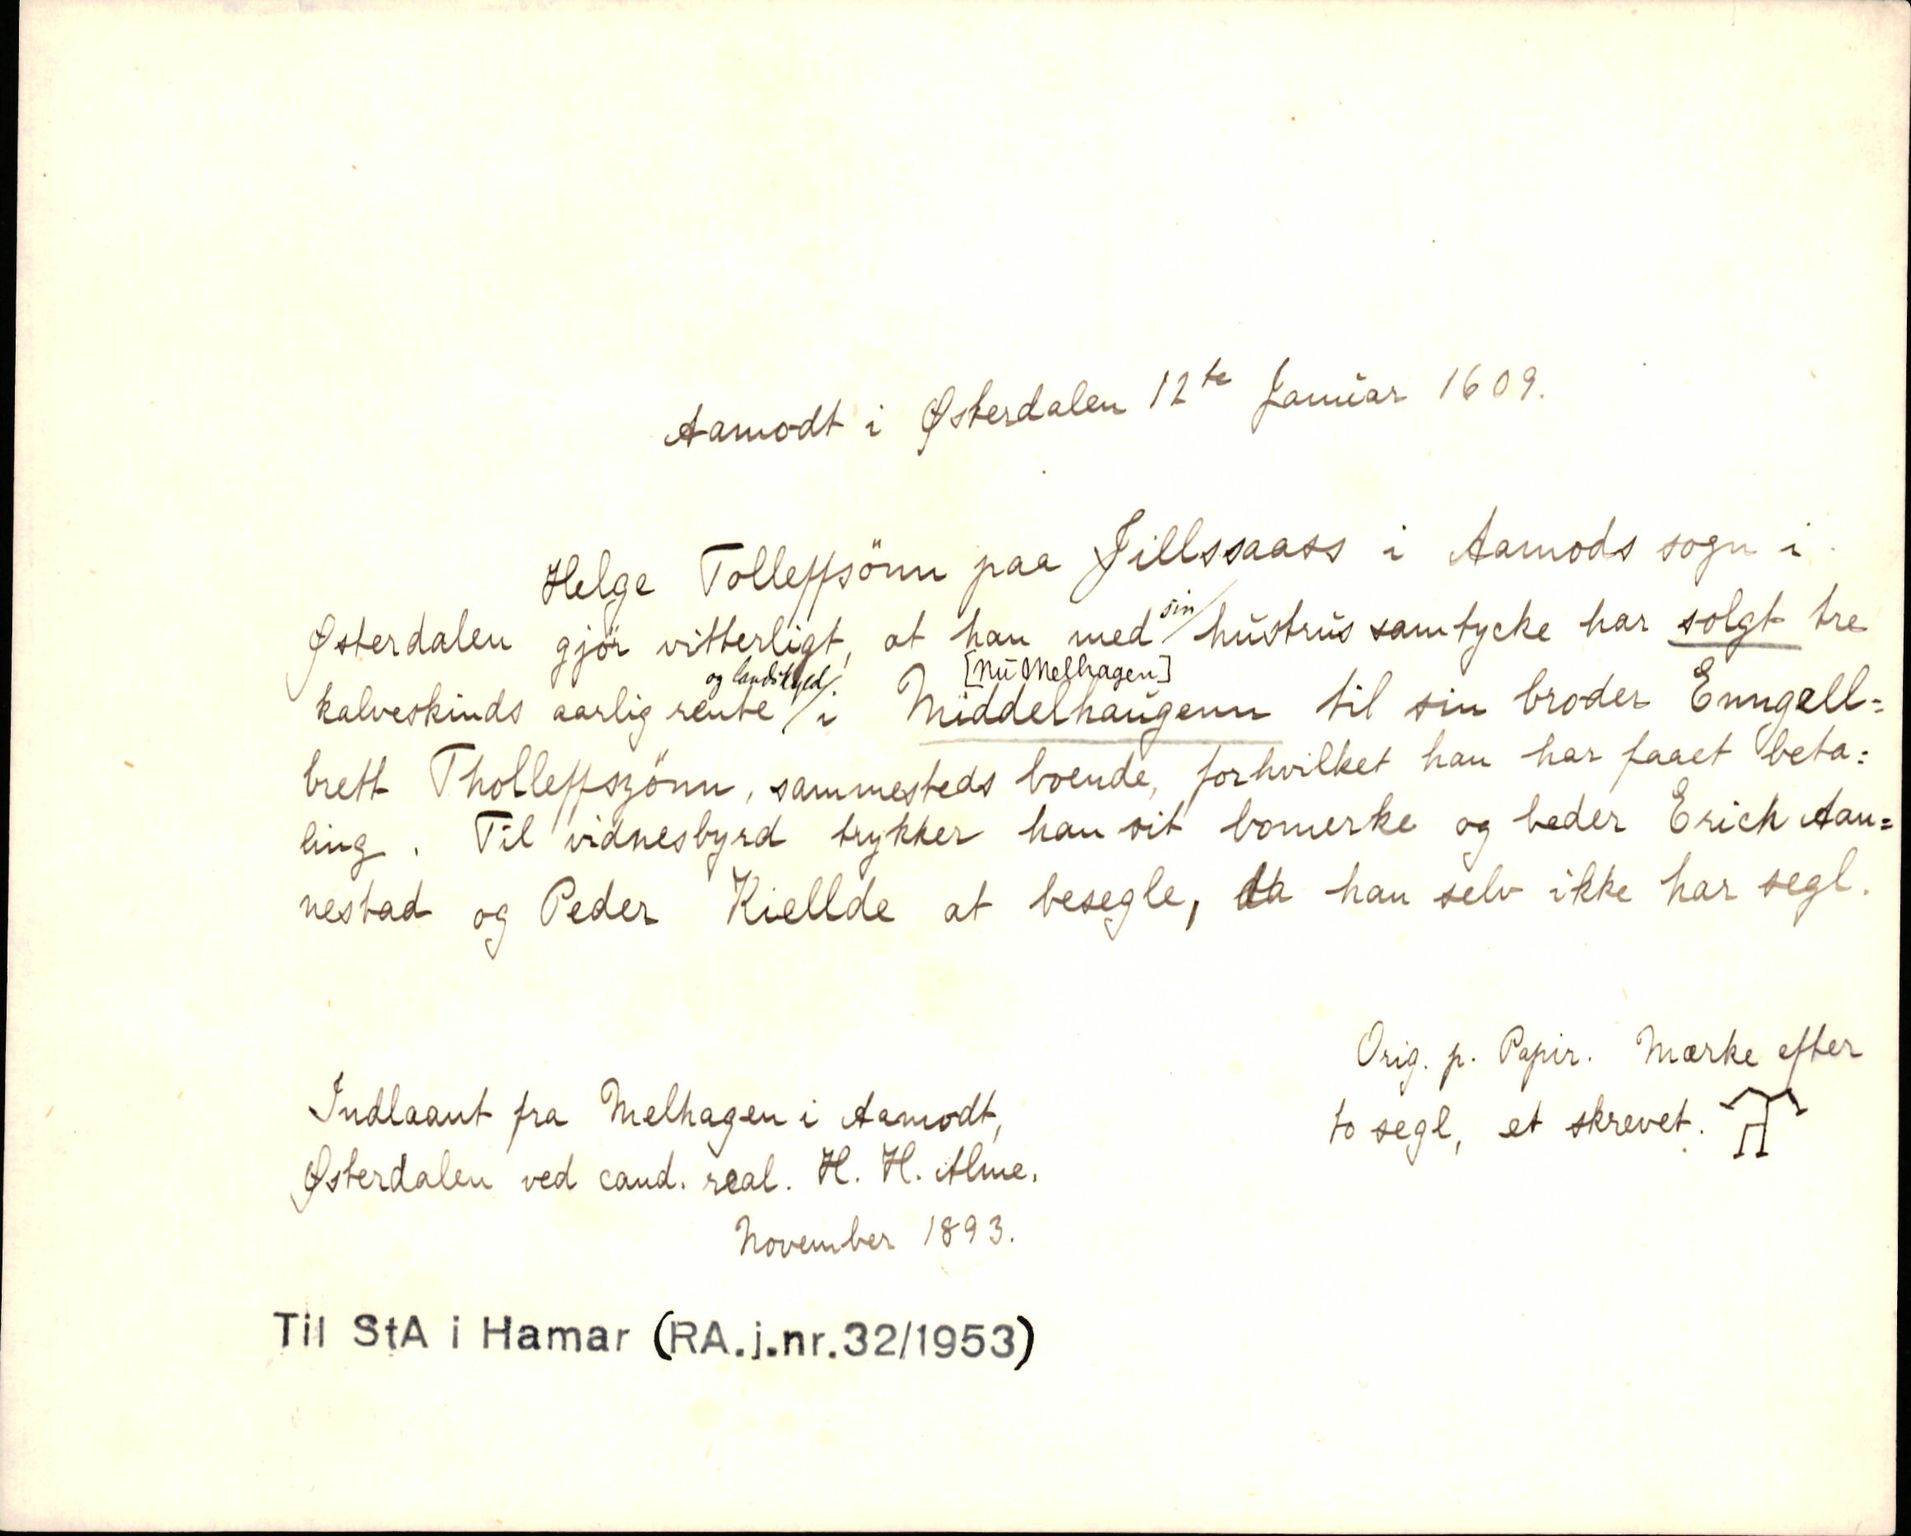 Aamodt i Østerdalen 12te Januar 1609.
Helge Tolleffsönn paa Jillssaass i Aamods sogn i
Østerdalen gjör vitterligt, at han med sin hustrus samtycke har solgt tre
kalveskinds aarlig rente og landskyld i Middelhaugenn [nu Melhagen] til sin broder Enngell=
brett Tholleffszönn, sammesteds boende, forhvilket han har faaet beta=
ling. Til vidnesbyrd trykker han sit bomerke og beder Erich Aan=
nestad og Peder Kiellde at besegle, da han selv ikke har segl.
Orig. p. Papir. Mærke efter
to segl, et skrevet.
Indlaant fra Melhagen i Aamodt,
Østerdalen ved cand. real. H. H. Alme.
November 1893.
Til StA i Hamar (RA.j.nr.32/1953)